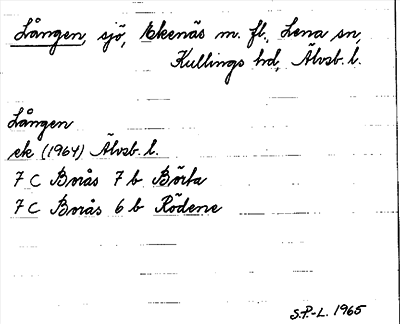 Lången, sjö, Ekenäs m. fl., Lena sn,
Kullings hd, Älvsb. l.
Lången
ek (1964) Älvsb. l.
7 C Borås 7 b Börta
7 C Borås 6 b Rödene
S.P-L. 1965